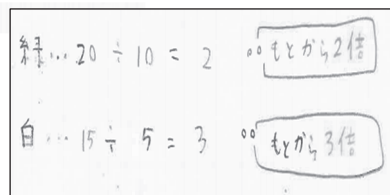 緑… 20 ÷ 10 = 2 ∴ もとから2倍
白… 15 ÷ 5 = 3 ∴ もとから3倍